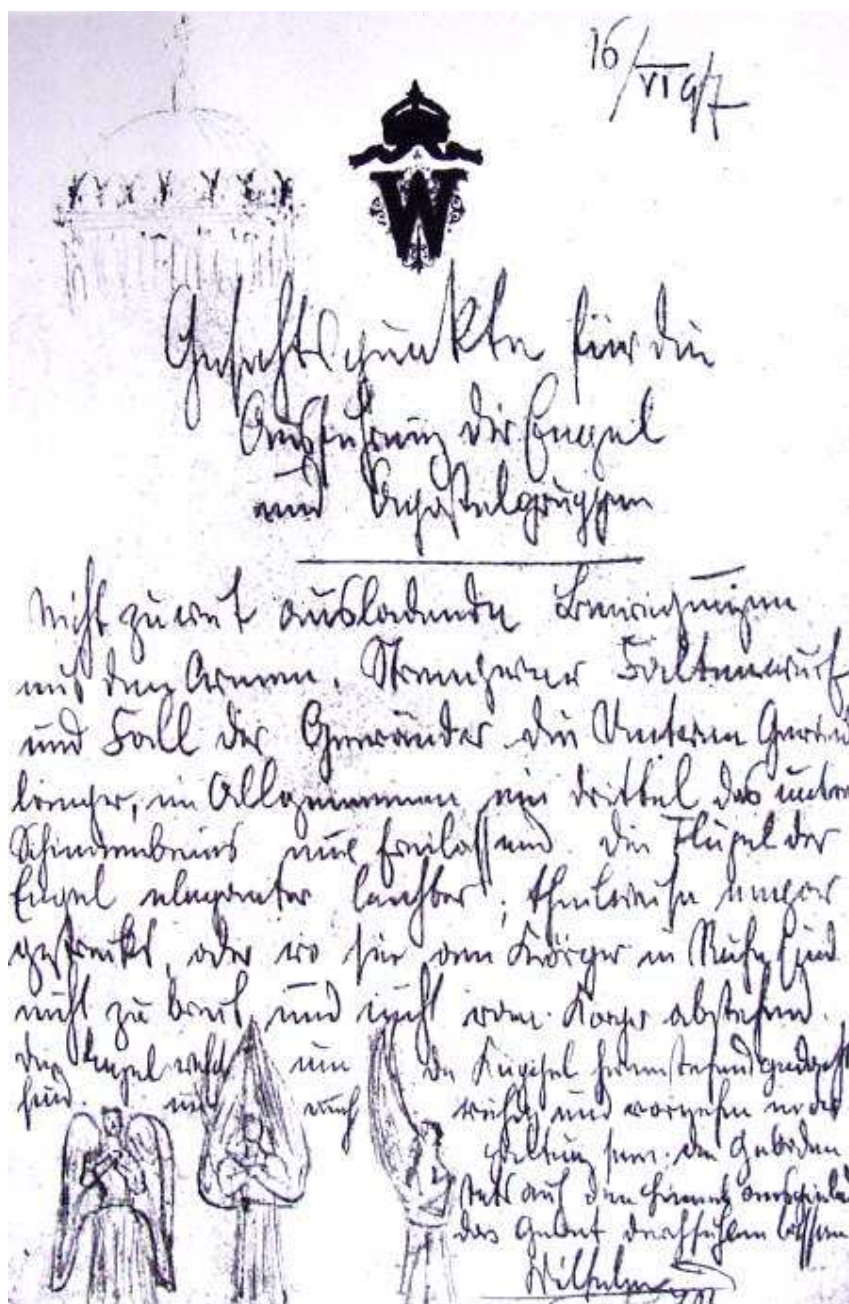 16/VI 97
W
Gesichtspunkte für die
Ausführung der Engel
und Apostelgruppen
Nicht zu weit ausladende Bewegungen
mit den Armen. Strengerer Faltenwurf
und Fall der Gewänder die Unteren Gewänd
länger, im Allgemeinen ein drittel des untern
Schienenbeins nur freilassend. Die Flügel der
Engel eleganter leichter, theilweise empor
gestreckt, oder wo sie am Körper in Ruhe sind
nicht zu breit und nicht vom Körper abstehend.
Die Engel welche um die Kuppel herumstehend gedacht
sind. und
ruhig und vornehm in der
Haltung sein. die Geberden
stets auf den Himmel
das Gebet durchfühlen lassen
Wilhelm